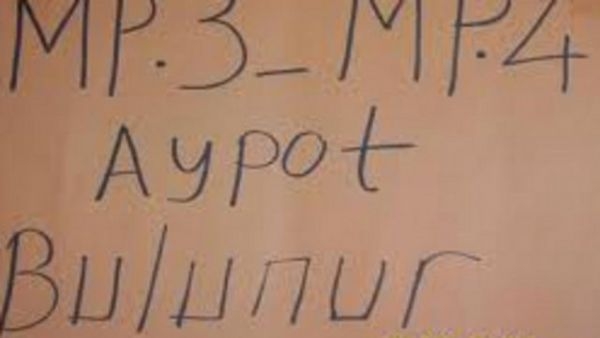 MP.3_MP.4
Aypot
Bulunur